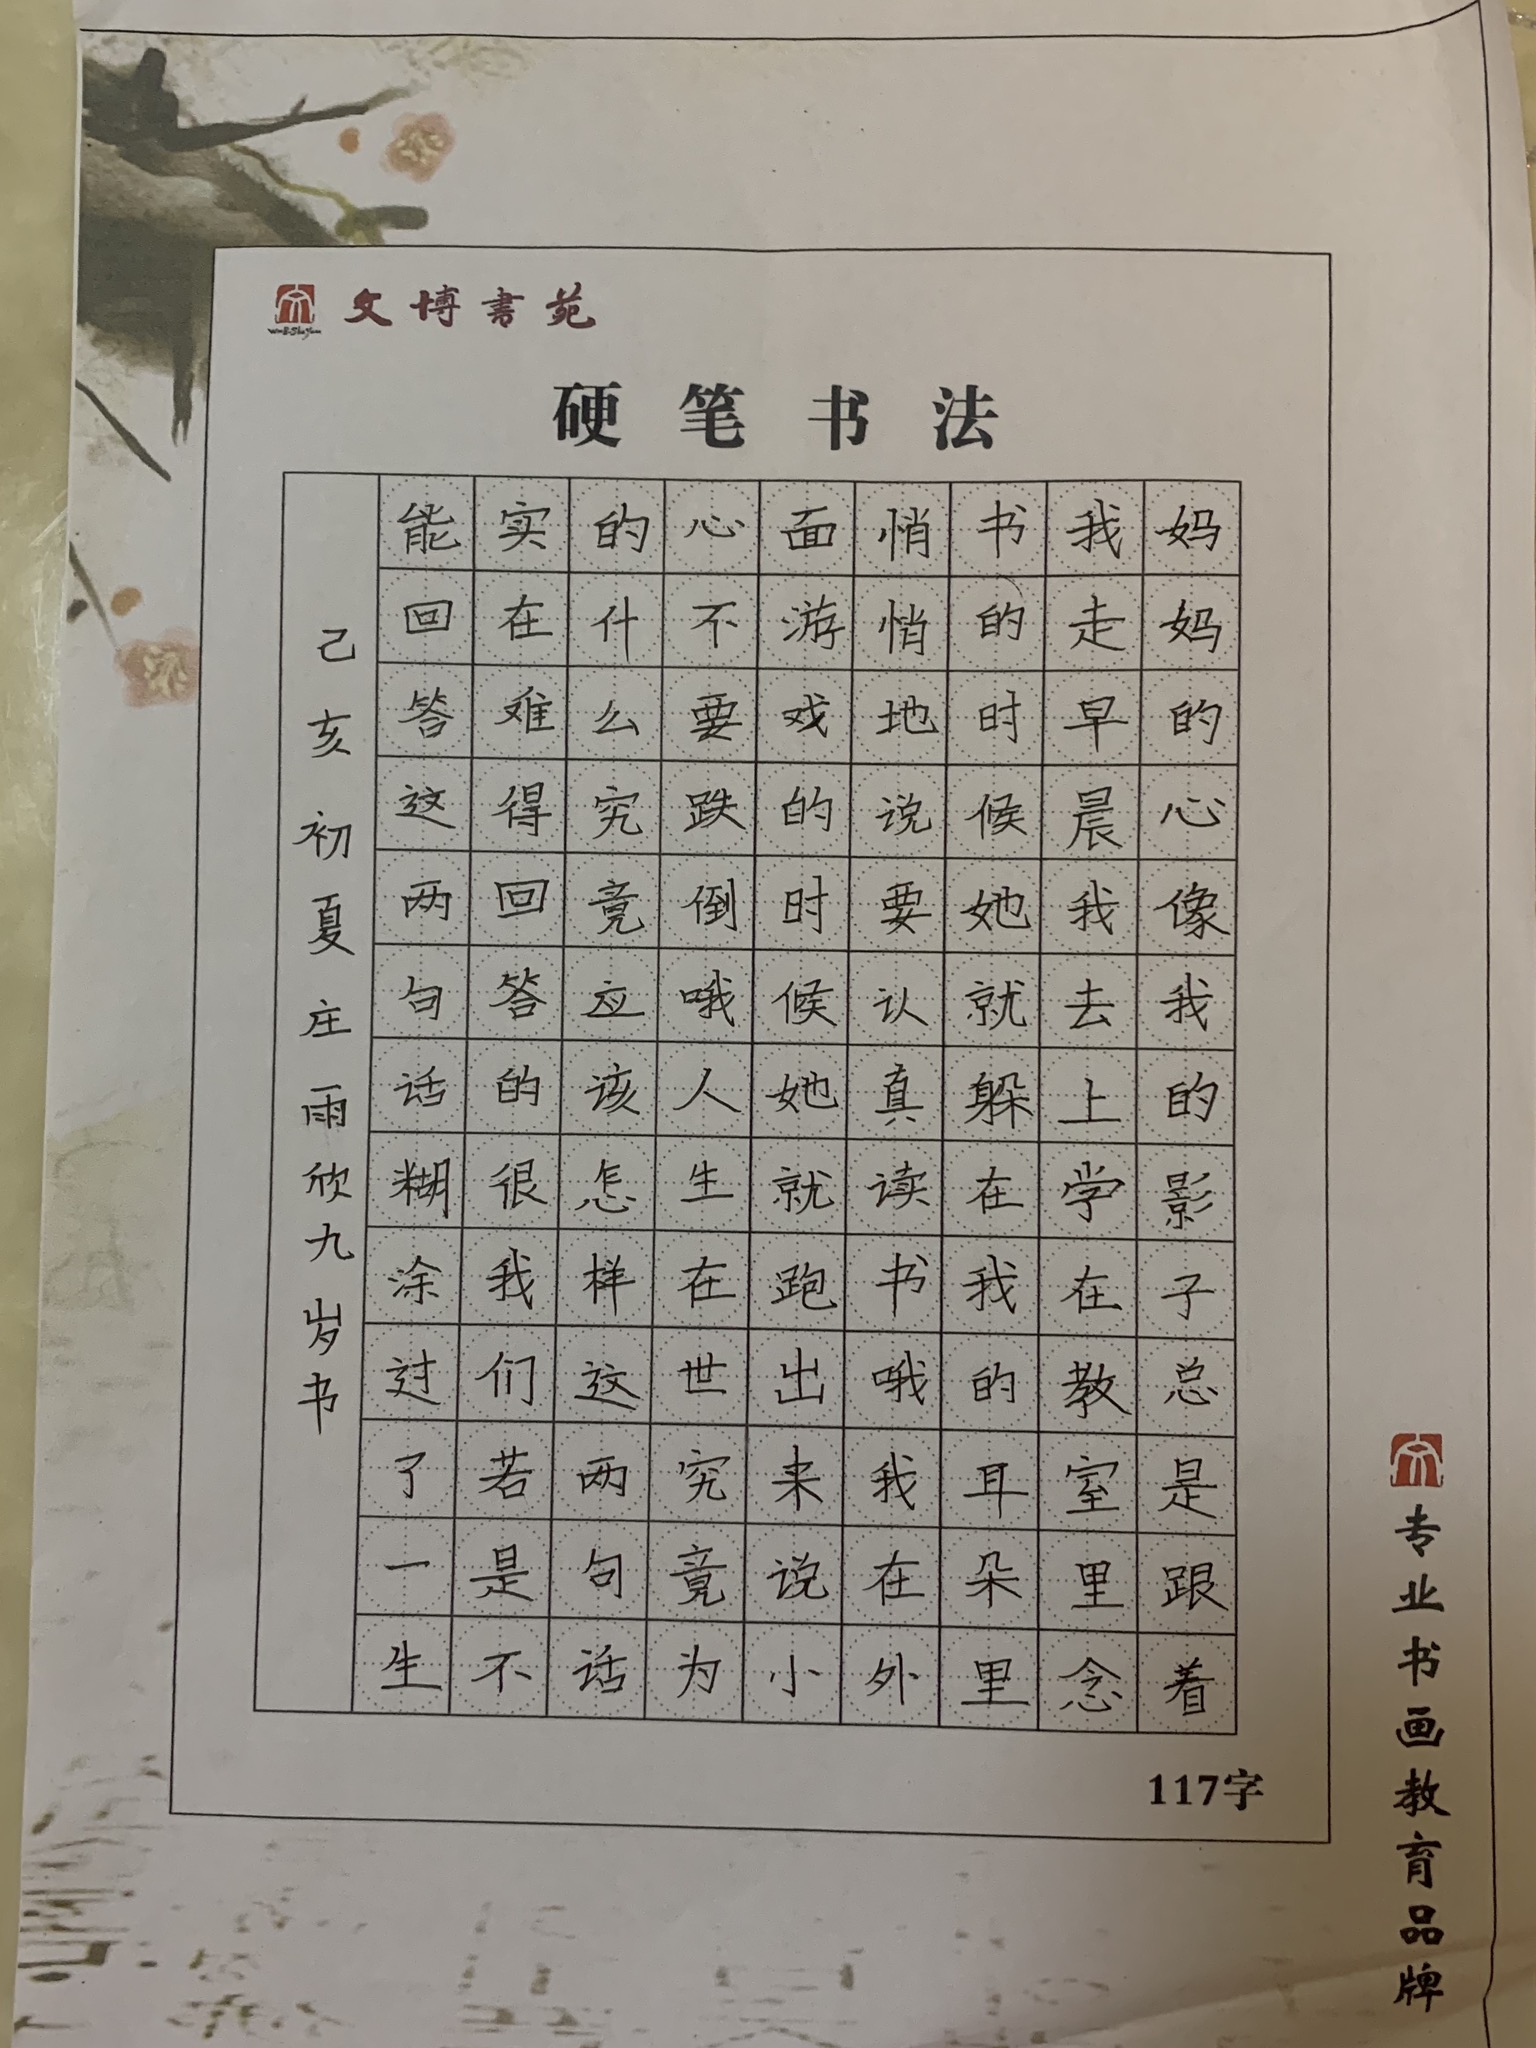 文博書苑
硬笔书法
妈妈的心像我的影子总是跟着
我走早晨我去上学在教室里念
书的时候她就躲在我的耳朵里
悄悄地说要认真读书哦我在外
面游戏的时候她就跑出来说小
心不要跌倒哦人生在世究竟为
的什么究竟应该怎样这两句话
实在难得回答的很我们若是不
能回答这两句话糊涂过了一生
己亥初夏庄雨欣九岁书
117字
专业书画教育品牌